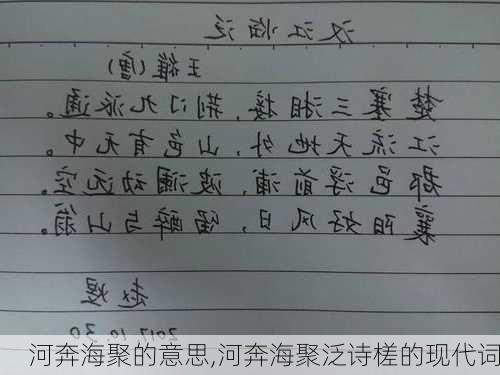 汉江临泛
王维(唐)
楚塞三湘接,荆门九派通。
江流天地外,山色有无中。
郡邑浮前浦,波澜动远空。
襄阳好风日,留醉与山翁。
赵
2017.10.30
河奔海聚的意思,河奔海聚泛诗槎的现代词